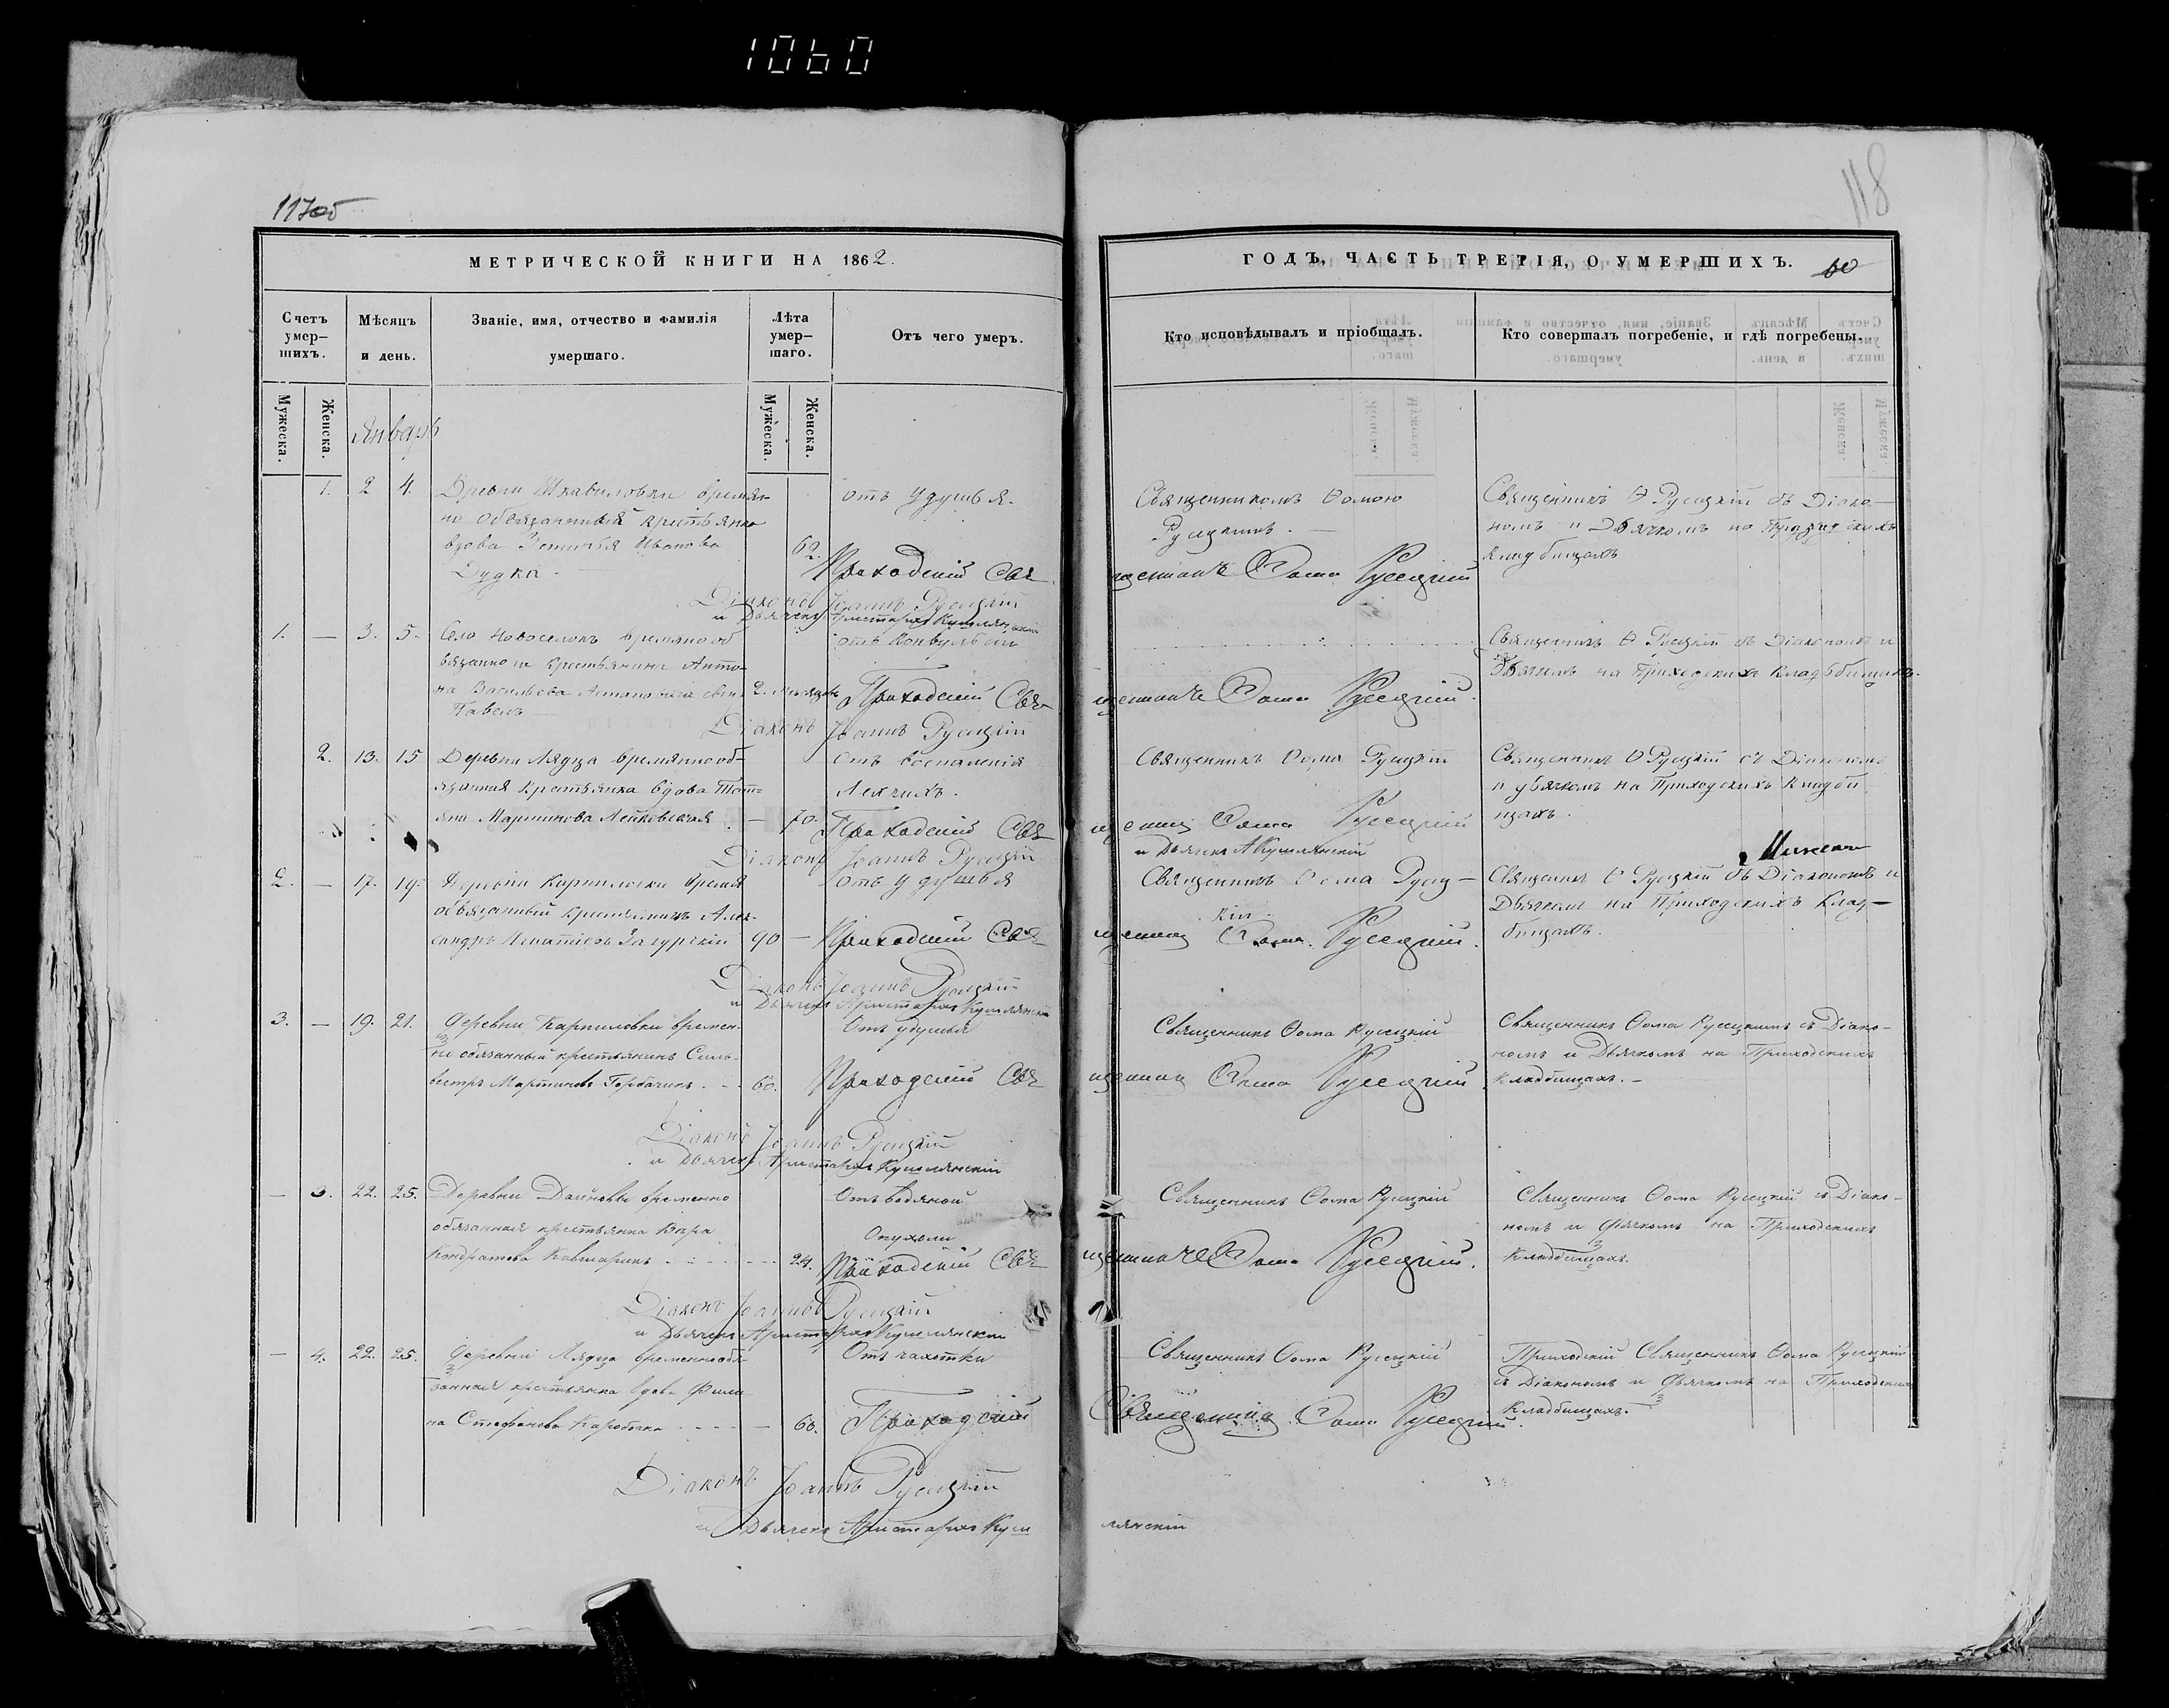 1060
117об
118
МЕТРИЧЕСКОЙ КНИГИ НА 1862.
ГОДЪ, ЧАСТЬ ТРЕТІЯ, О УМЕРШИХЪ. 60
Счетъ умер-шихъ.
Мѣсяцъ и день.
Званіе, имя, отчество и фамилія умершаго.
Лѣта умер-шаго.
Отъ чего умеръ.
Кто исповѣдывалъ и пріобщалъ.
Кто совершалъ погребеніе, и гдѣ погребены.
Мужеска.
Женска.
Январь
Мужеска.
Женска.
1. 2 4.
вдова Иванова
Дудка 62.
отъ удушья.
Русецкимъ.
Священникъ Ѳ Русецкій съ Діако-
номъ и Дьячкомъ на
кладбищахъ
Приходскій Свя
щенникъ Ѳома Русецкій
Діаконъ Іоаннъ Русецкій
и Дьячекъ Аристархъ Кушлянскій
1. — 3. 5. Село Новоселокъ
крестьянина Анто-
на Васильева сынъ 2. мѣсяцовъ
Павелъ
отъ конвульсіи
Священникъ Ѳ Русецкій съ Діакономъ и
Дьячкомъ на Приходскихъ Кладбищахъ.
Приходскій Свя
щенникъ Ѳома Русецкій.
Діаконъ Іоаннъ Русецкій
2. 13. 15 Деревни Лядца времяннооб-
язанная Крестьянка вдова Тать-
яна Мартинова — 70.
Отъ воспаленія
Легкихъ.
Священникъ Ѳома Русецкій
Священникъ Ѳ Русецкій съ Діакономъ
и дьячкомъ на Приходскихъ Кладби
щахъ.
Приходскій Свя
щенникъ Ѳома Русецкій
Діаконъ Іоаннъ Русецкій
и Дьячекъ А Кушлянскій
2. — 17. 19. Деревни Карпиловки
обязанный крестьянинъ Алек-
сандръ Игнатіевъ Загурскій 90 —
отъ удушья
Священникъ Ѳома Русец-
кій.
Священникъ Ѳ Русецкій съ Діакономъ и
Дьячкомъ на Приходскихъ Клад-
бищахъ.
Приходскій Свя
щенникъ Ѳома Русецкій.
Діаконъ Іоаннъ Русецкій
и Дьячекъ Аристархъ Кушлянскій
3. — 19. 21. Деревни Карпиловки времен-
но обязанный крестьянинъ Силь-
вестръ Мартиновъ Горбачикъ 60.
Отъ удушья
Священникъ Ѳома Русецкій
Священникъ Ѳома Русецкимъ съ Діако-
номъ и Дьячкомъ на Приходскихъ
Кладбищахъ.
Приходскій Свя
щенникъ Ѳома Русецкій.
Діаконъ Іоаннъ Русецкій
и Дьячекъ Аристархъ Кушлянскій
— 3. 22. 25. Деревни Дайновы временно
обязанная крестьянка Вѣра
Кондратова 24.
Отъ водяной
Опухоли
Священникъ Ѳома Русецкій
Священникъ Ѳома Русецкій съ Діако-
номъ и Дьячкомъ на Приходскихъ
Кладбищахъ.
Приходскій Свя
щенникъ Ѳома Русецкій.
Діаконъ Іоаннъ Русецкій
и Дьячекъ Аристархъ Кушлянскій
— 4. 22. 25. Деревни Лядца временнообя-
занная крестьянка вдова
Стефанова 60.
Отъ чахотки
Священникъ Ѳома Русецкій
Приходскій Священникъ Ѳома Русецкій
съ Діакономъ и Дьячкомъ на Приходскихъ
Кладбищахъ.
Приходскій
Священникъ Ѳома Русецкій.
Діаконъ Іоаннъ Русецкій
и Дьячекъ Аристархъ Куш
лянскій